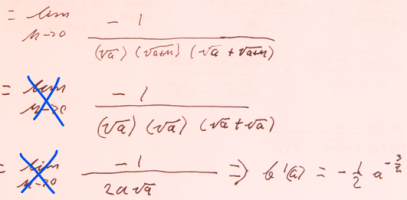 = lim h→0 -1 / (√a) (√a+h) (√a + √a+h)
= lim h→0 -1 / (√a) (√a) (√a + √a)
= lim h→0 -1 / 2a√a => f'(a) = -1/2 a^-3/2